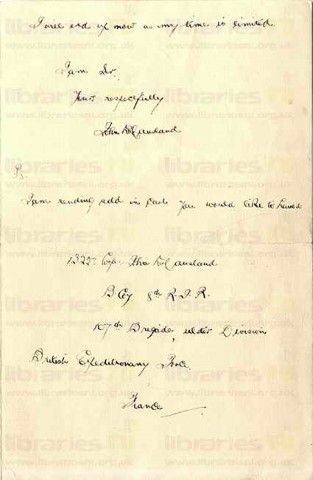 I will end up now as my time is limited.
I am Sr.
Your respectfully
John
Ps.
I am sending add in case you would like to
B Coy 8th R.I.R.
107th Brigade, Ulster Division
British Expeditionary Force
France
libraries ni
www.librariesni.org.uk